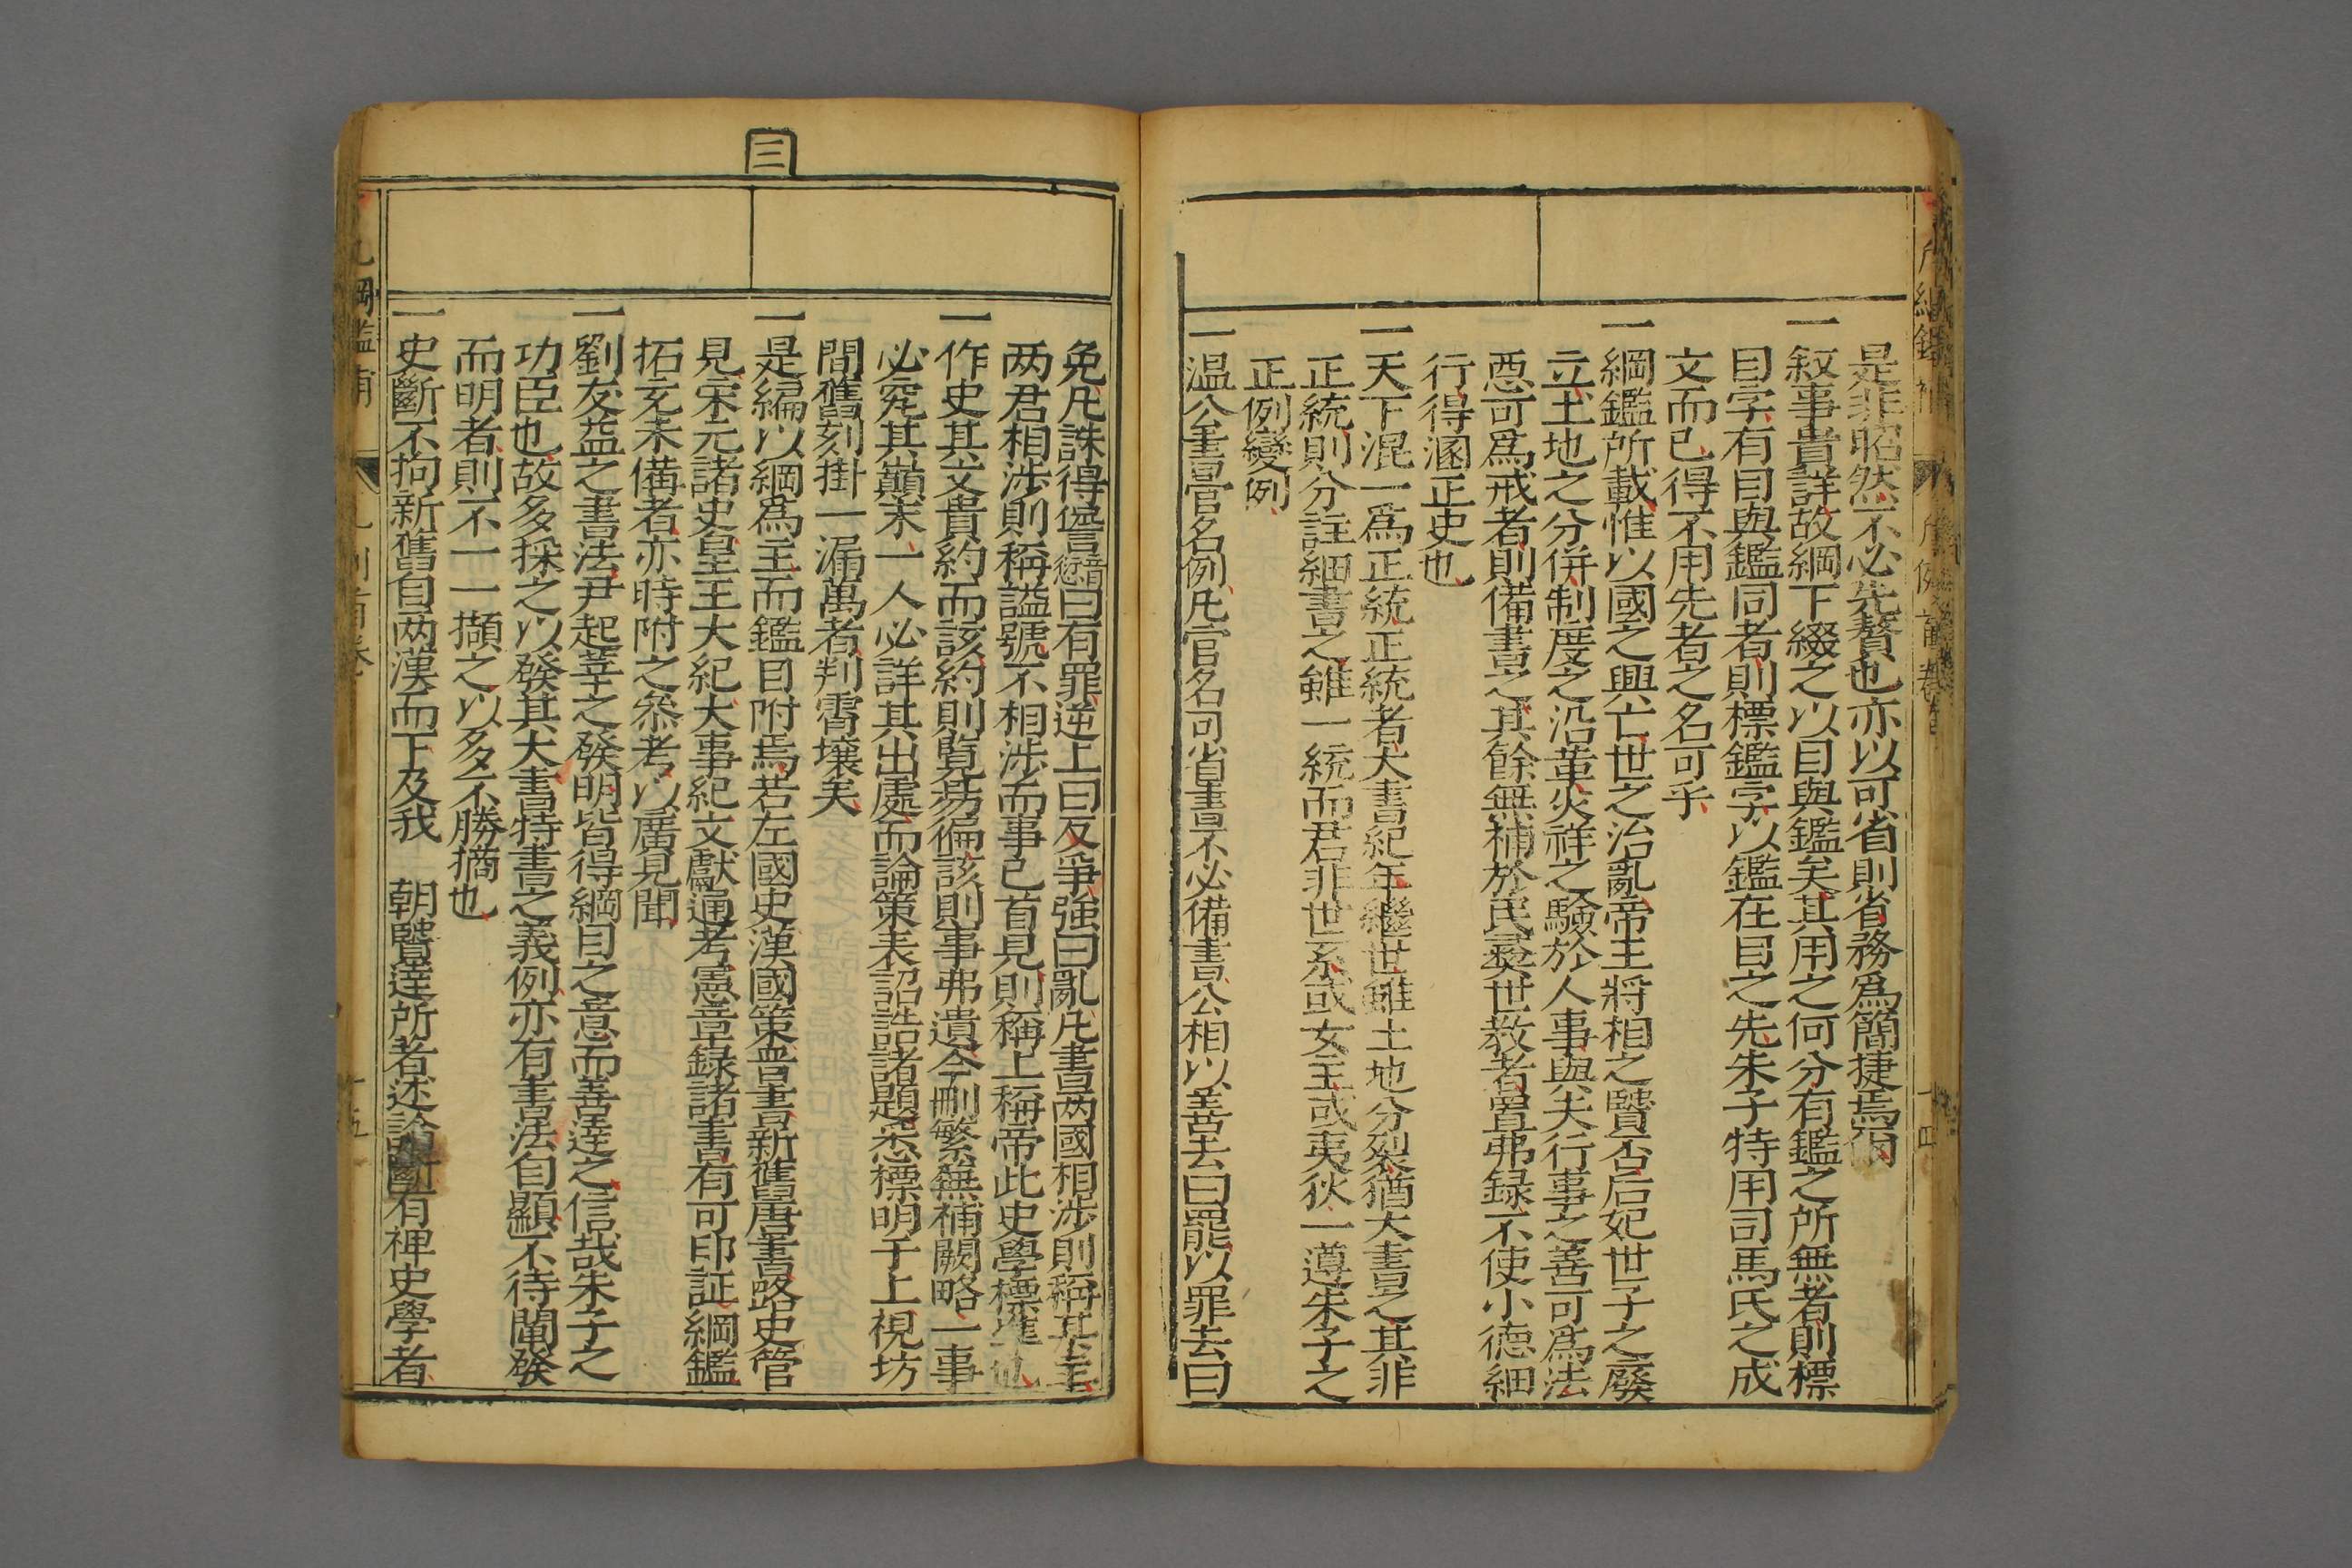 是非昭然不必先贅也亦以可省則省務爲簡捷焉爾
一敘事貴詳故綱下綴之以目與鑑矣其用之何分有鑑之所無者則標
目字有目與鑑同者則標鑑字以鑑在目之先朱子特用司馬氏之成
文而已得不用先者之名可乎
一綱鑑所載惟以國之興亡世之治亂帝王將相之賢否后妃世子之廢
立土地之分併制度之沿革災祥之驗於人事與夫行事之善可爲法
惡可爲戒者則備書之其餘無補於民彛世教者置弗録不使小德細
行得溷正史也
一天下混一爲正統正統者大書紀年繼世雖土地分裂猶大書之其非
正統則分註細書之雖一統而君非世系或女主或夷狄一遵朱子之
正例變例
一温公書官名例凡官名可省書不必備書公相以善去曰罷以罪去曰
免凡誅得僭曰有罪逆上曰反爭強曰亂凡書两國相涉則稱其主
两君相涉則稱謚號不相涉而事已首見則稱上稱帝此史學標準也
一作史其文貴約而該約則覧易徧該則事弗遺今刪繁無補闕略一事
必究其巔末一人必詳其出處而論策表詔誥諸題悉標明于上視坊
間舊刻掛一漏萬者判霄壤矣
一是編以綱爲主而鑑目附焉若左國史漢國策晉書新舊唐書路史管
見宋元諸史皇王大紀大事紀文獻通考憲章録諸書有可印証綱鑑
拓充未備者亦時附之叅考以廣見聞
一劉友益之書法尹起莘之發明皆得綱目之意而善逹之信哉朱子之
功臣也故多採之以發其大書特書之義例亦有書法自顯不待闡發
而明者則不一一擷之以多不勝摘也
一史斷不拘新舊自两漢而下及我　朝賢達所著述論斷有裨史學者
三